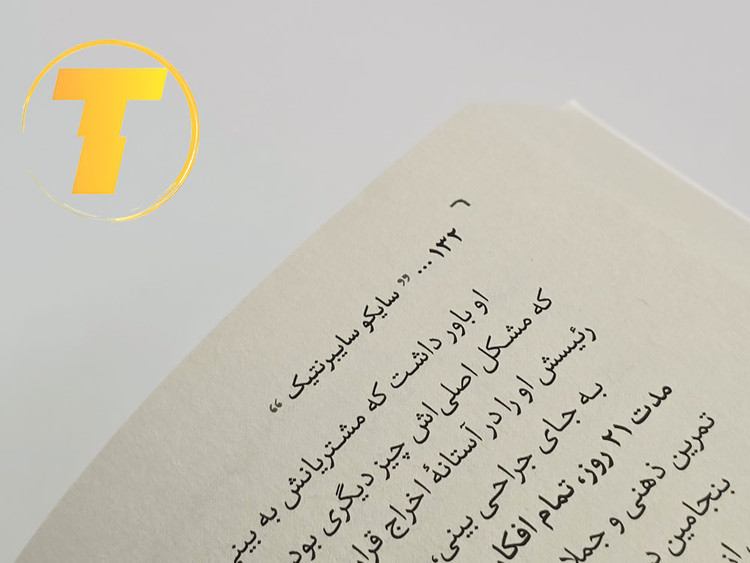 T
۱۳۲ ... «سایکو سایبرنتیک»
او باور داشت که مشتریانش به
که مشکل اصلی‌اش چیز دیگری بود
رئیسش او را در آستانهٔ اخراج
به جای جراحی بینی،
مدت ۲۱ روز، تمام
تمرین ذهنی و
بنجامین